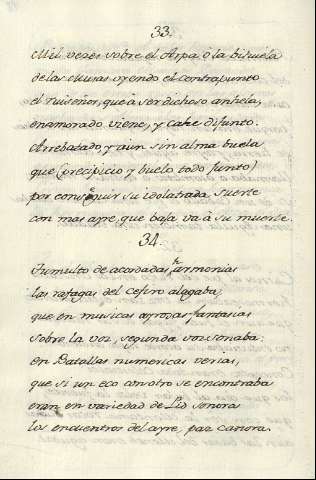 33.
Mil vezes sobre el Arpa ò la bihuela
de las Musas oyendo el contrapunto
el ruiseñor, que à ser dichoso anhela,
enamorado viene, y cahe difunto.
Arrebatado, y aun sin alma buela
que (precipicio y buelo todo junto)
por conseguir su idolatrada suerte
con mas ayre, que baja va à su muerte.
34.
Tumulto de acordadas harmonias
las rafagas del cefiro alagaba,
que en musicas ayrosas fantasias
sobre la voz, segunda voz sonaba.
en Batallas numericas verias,
que si un eco con otro se encontraba
eran en variedad de Lid sonora
los encuentros del ayre, paz canora.